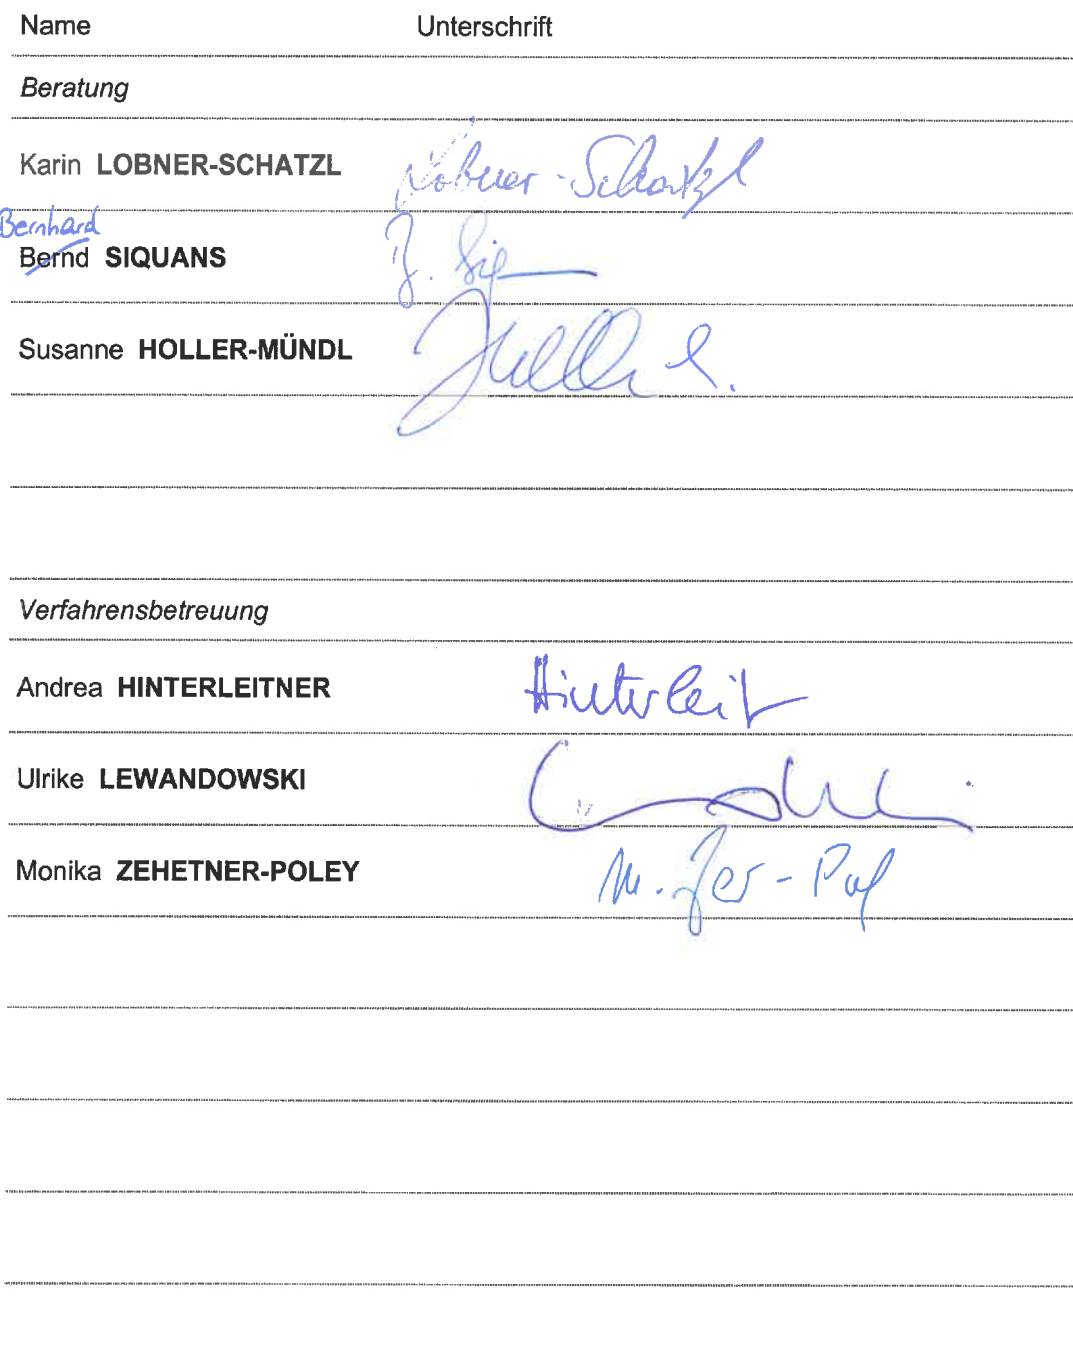 Name Unterschrift
Beratung
Karin LOBNER-SCHATZL Lobner-Schatzl
Bernhard
Bernd SIQUANS B. Siq
Susanne HOLLER-MÜNDL
Verfahrensbetreuung
Andrea HINTERLEITNER Hinterleit
Ulrike LEWANDOWSKI
Monika ZEHETNER-POLEY M. Zer-Pol